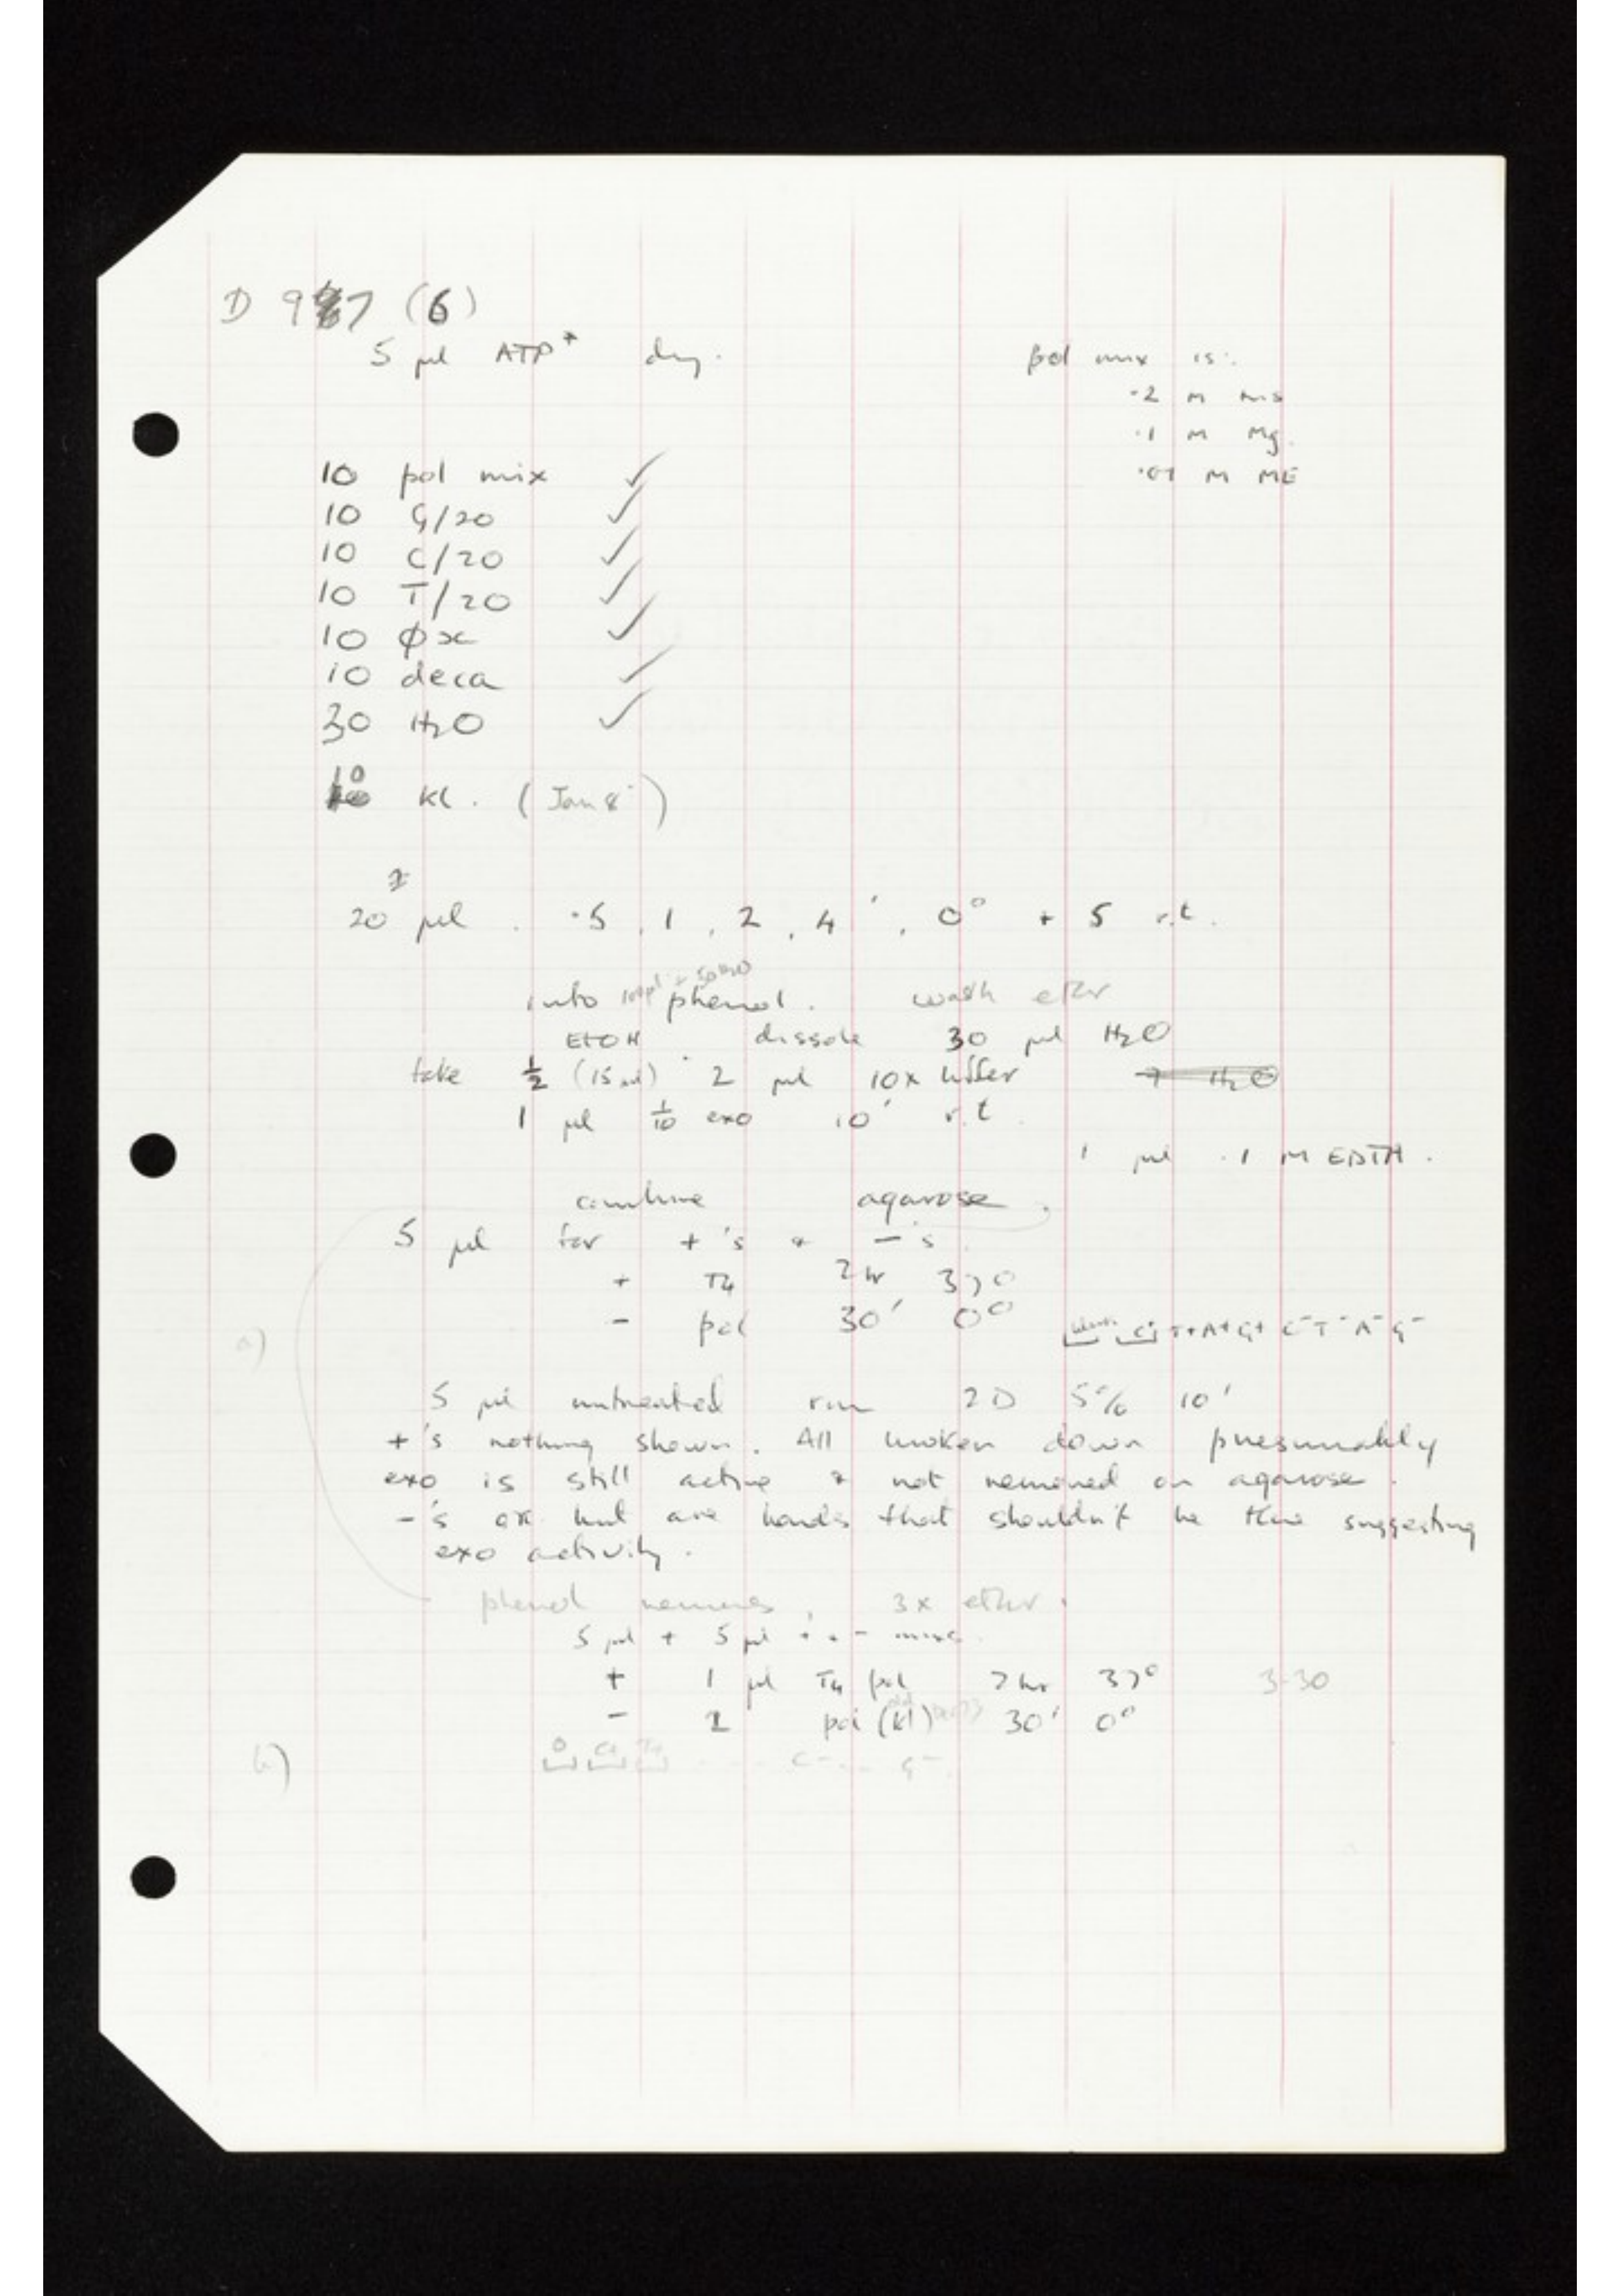 D 9 7 (6)
5 µl ATP* dry.
pol mix is:
·2 M tris
·1 M Mg.
·01 M ME
10 pol mix ✓
10 G/20 ✓
10 C/20 ✓
10 T/20 ✓
10 ϕx ✓
10 deca ✓
30 H2O ✓
10
Kl. (Jan 8)
20 µl . ·5, 1, 2, 4', 0° + 5 r.t.
into phenol. wash ether
EtOH dissolve 30 µl H2O
take ½ (15 µl) 2 µl 10x buffer
1 µl 1/10 exo 10' r.t.
1 µl .1 M EDTA.
combine agarose.
5 µl for +'s + -'s.
+ T4 2 hr 37°
- pol 30' 0°
C+ T+ A+ G+ C- T- A- G-
a)
5 µl untreated run 2D 5% 10'
+'s nothing shown. All broken down presumably
exo is still active + not removed on agarose.
-'s OK but are bands that shouldn't be there suggesting
exo activity.
phenol 3x ether.
5 µl + 5 µl + + - mixes.
+ 1 µl T4 pol 2 hr 37° 3-30
- 1 pol (kl) 30' 0°
b)
0 C+ T+ - - - C- - - G-